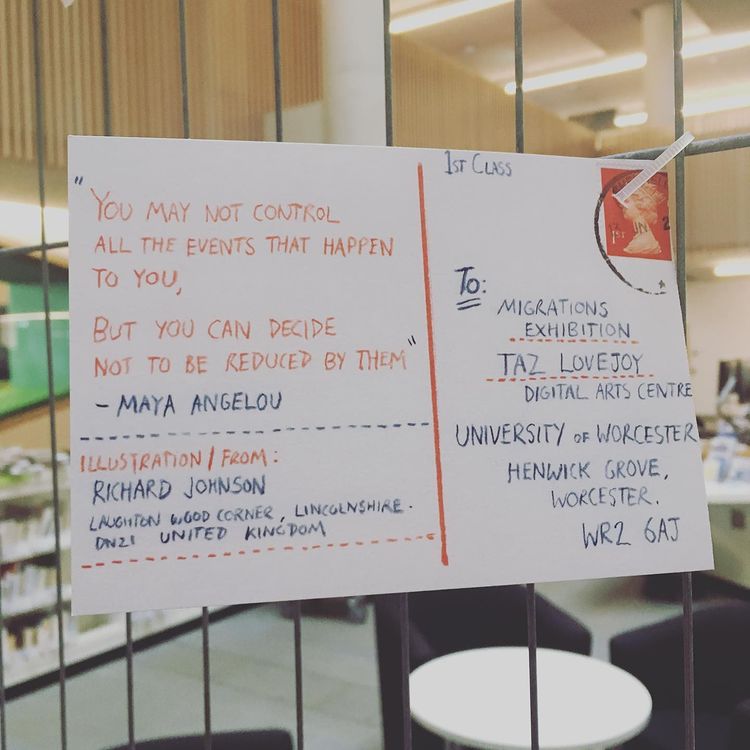 "YOU MAY NOT CONTROL
ALL THE EVENTS THAT HAPPEN
TO YOU,
BUT YOU CAN DECIDE
NOT TO BE REDUCED BY THEM"
- MAYA ANGELOU
ILLUSTRATION / FROM:
RICHARD JOHNSON
LAUGHTON WOOD CORNER, LINCOLNSHIRE.
DN21 UNITED KINGDOM
1ST CLASS
1st
JN 2
TO:
MIGRATIONS
EXHIBITION
TAZ LOVEJOY
DIGITAL ARTS CENTRE
UNIVERSITY OF WORCESTER
HENWICK GROVE,
WORCESTER.
WR2 6AJ